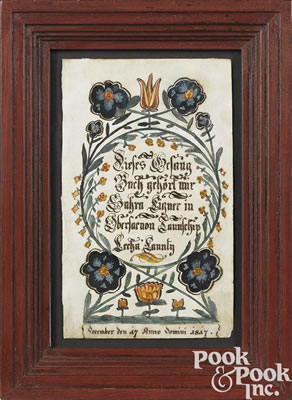 Dieses Gesang
Buch gehört mir
Sahra Eigner in
Obersacon Taunschip
Lecha Caunty
December den 17 Anno Domini 1817.
POOK
& POOK
Inc.